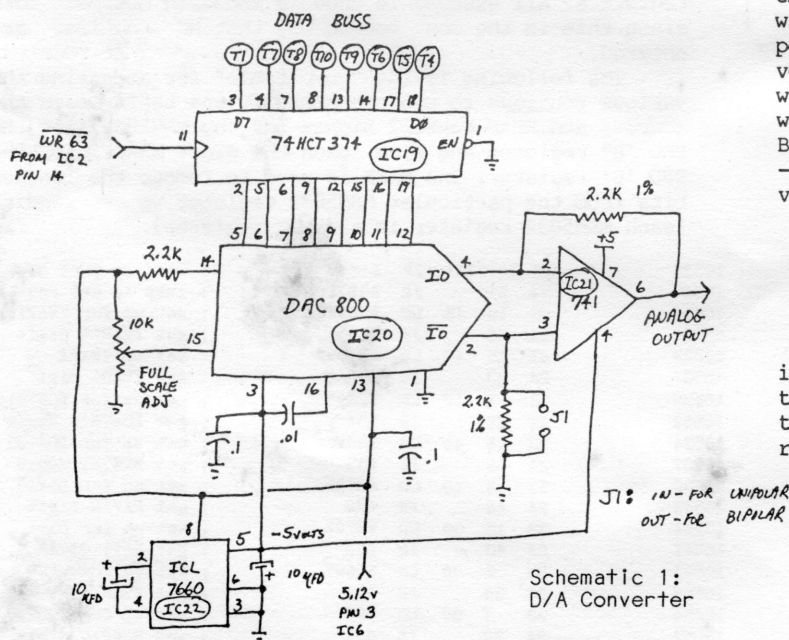 DATA BUSS
T1 T7 T8 T10 T9 T6 T5 T4
3 4 7 8 13 14 17 18
D7 DØ
WR 63
FROM IC2
PIN 14
11
74HCT374
IC19
EN
1
2 5 6 9 12 15 16 19
5 6 7 8 9 10 11 12
2.2K 1%
2.2K
14
10K
15
FULL
SCALE
ADJ
DAC 800
IC20
IO
4
IO
2
+5
2
7
IC21
741
6
3
4
ANALOG
OUTPUT
3
16
13
1
.1
.01
.1
2.2K
1%
J1
J1: IN - FOR UNIPOLAR
OUT - FOR BIPOLAR
8
5
-5 VOLTS
2
ICL
7660
IC22
10 MFD
4
6
3
10 MFD
5,12V
PIN 3
IC6
Schematic 1:
D/A Converter